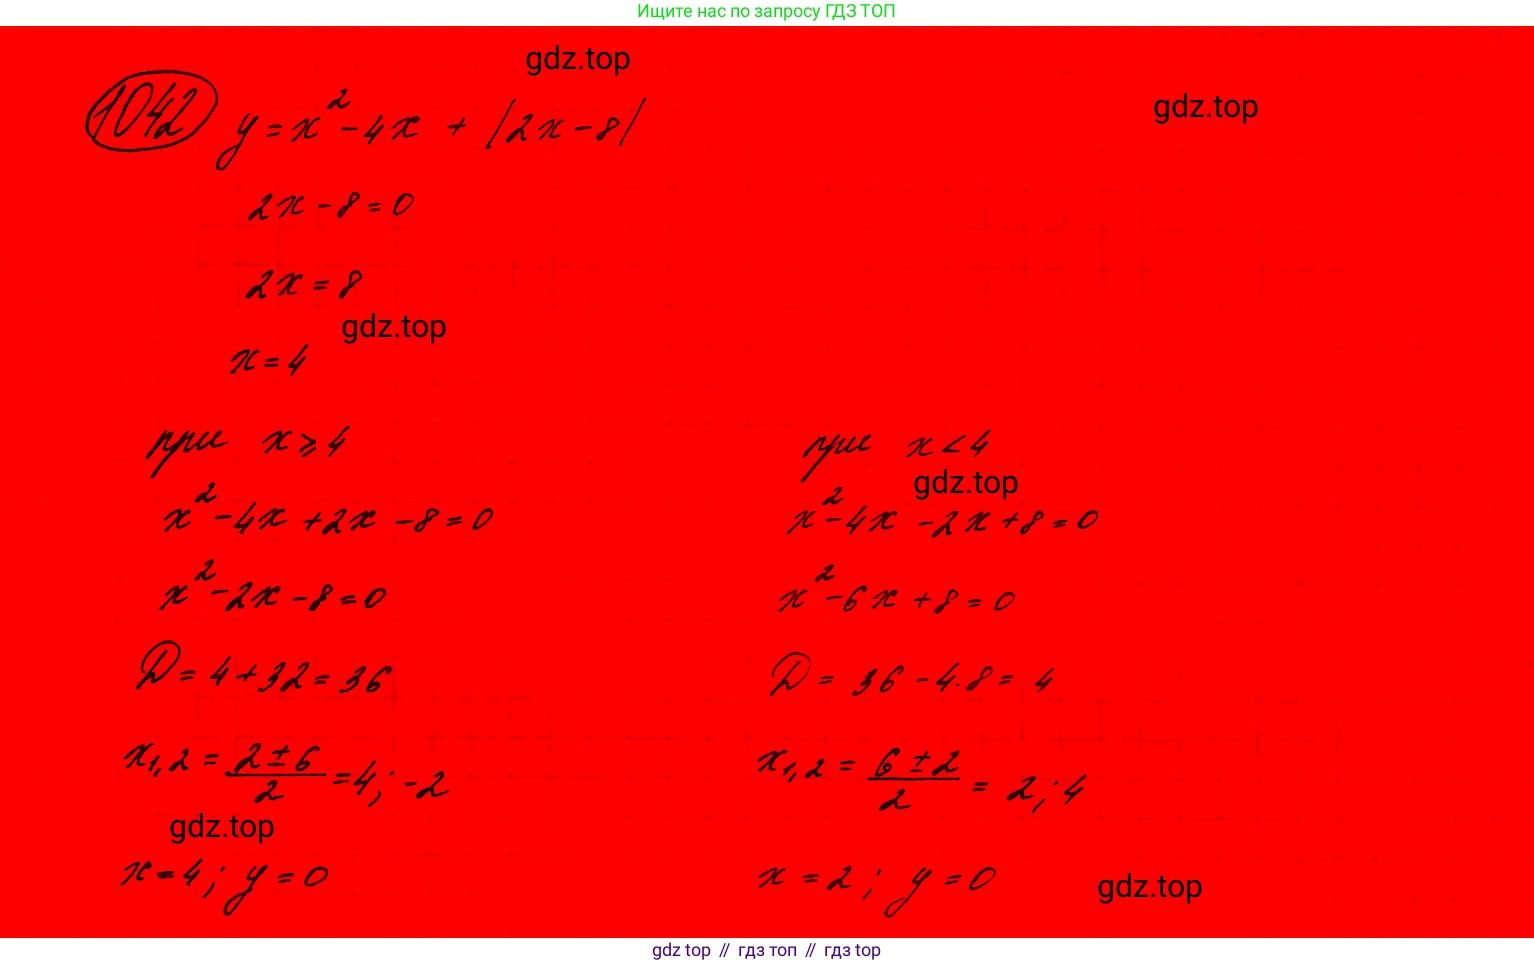 Ищите нас по запросу ГДЗ ТОП
gdz.top
1042 y = x² - 4x + |2x - 8|
gdz.top
2x - 8 = 0
2x = 8
gdz.top
x = 4
при x ⩾ 4
x² - 4x + 2x - 8 = 0
x² - 2x - 8 = 0
D = 4 + 32 = 36
x₁,₂ = (2 ± 6)/2 = 4; -2
gdz.top
x = 4; y = 0
при x < 4
gdz.top
x² - 4x - 2x + 8 = 0
x² - 6x + 8 = 0
D = 36 - 4·8 = 4
x₁,₂ = (6 ± 2)/2 = 2; 4
x = 2; y = 0
gdz.top
gdz.top // гдз топ // гдз top